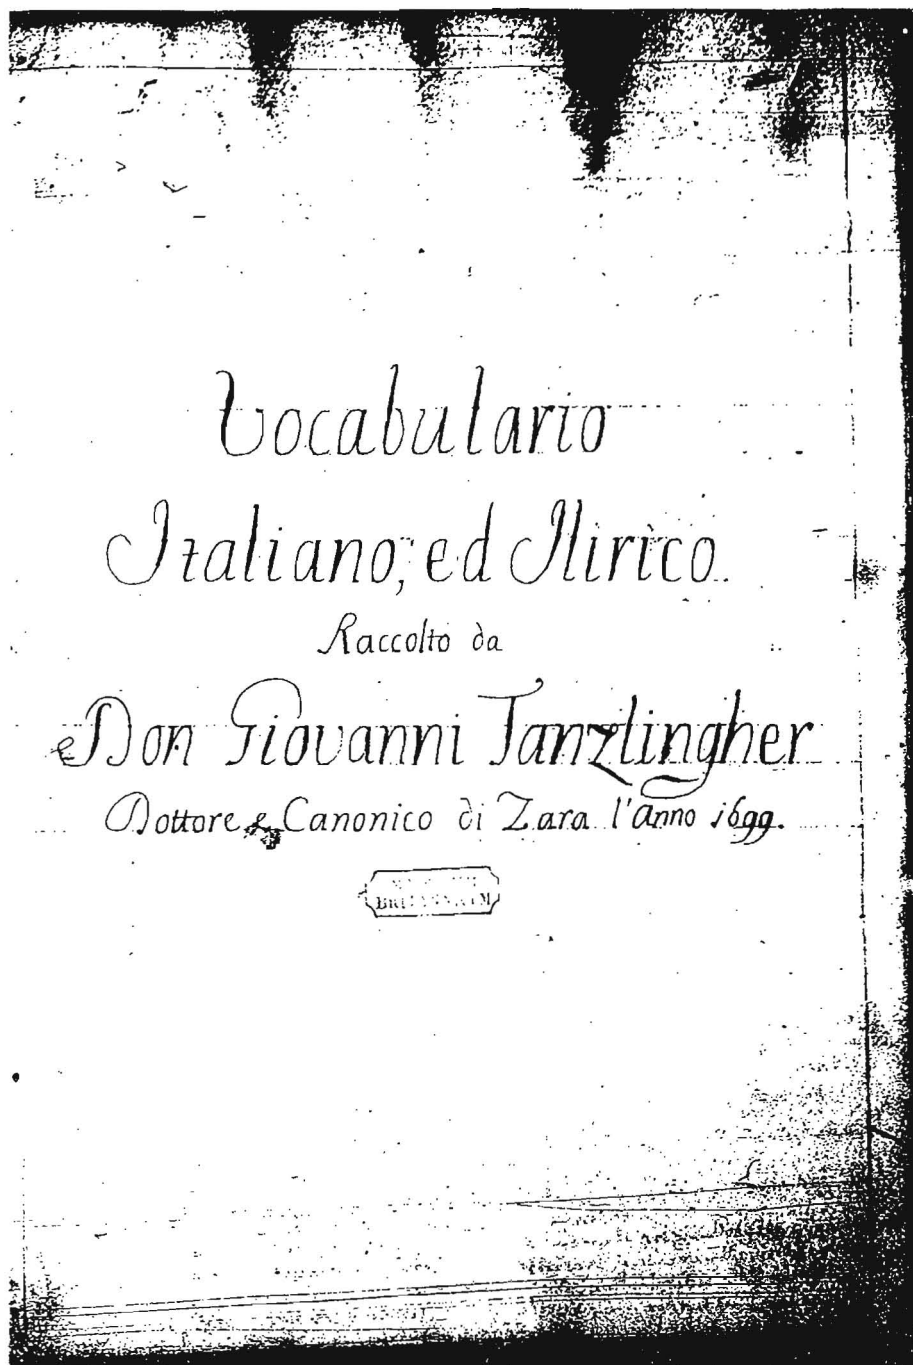 Vocabulario
Italiano, ed Ilirico
Raccolto da
Don Giovanni Tanzlingher
Dottore & Canonico di Zara l'Anno 1699.